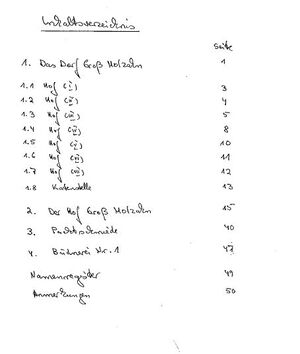 Inhaltsverzeichnis
Seite
1. Das Dorf Groß Molzahn 1
1.1 Hof (I) 3
1.2 Hof (II) 4
1.3 Hof (III) 5
1.4 Hof (IV) 8
1.5 Hof (V) 10
1.6 Hof (VI) 11
1.7 Hof (VII) 12
1.8 Katenstelle 13
2. Der Hof Groß Molzahn 15
3. Pachtschmiede 40
4. Büdnerei Nr. 1 47
Namenregister 49
Anmerkungen 50